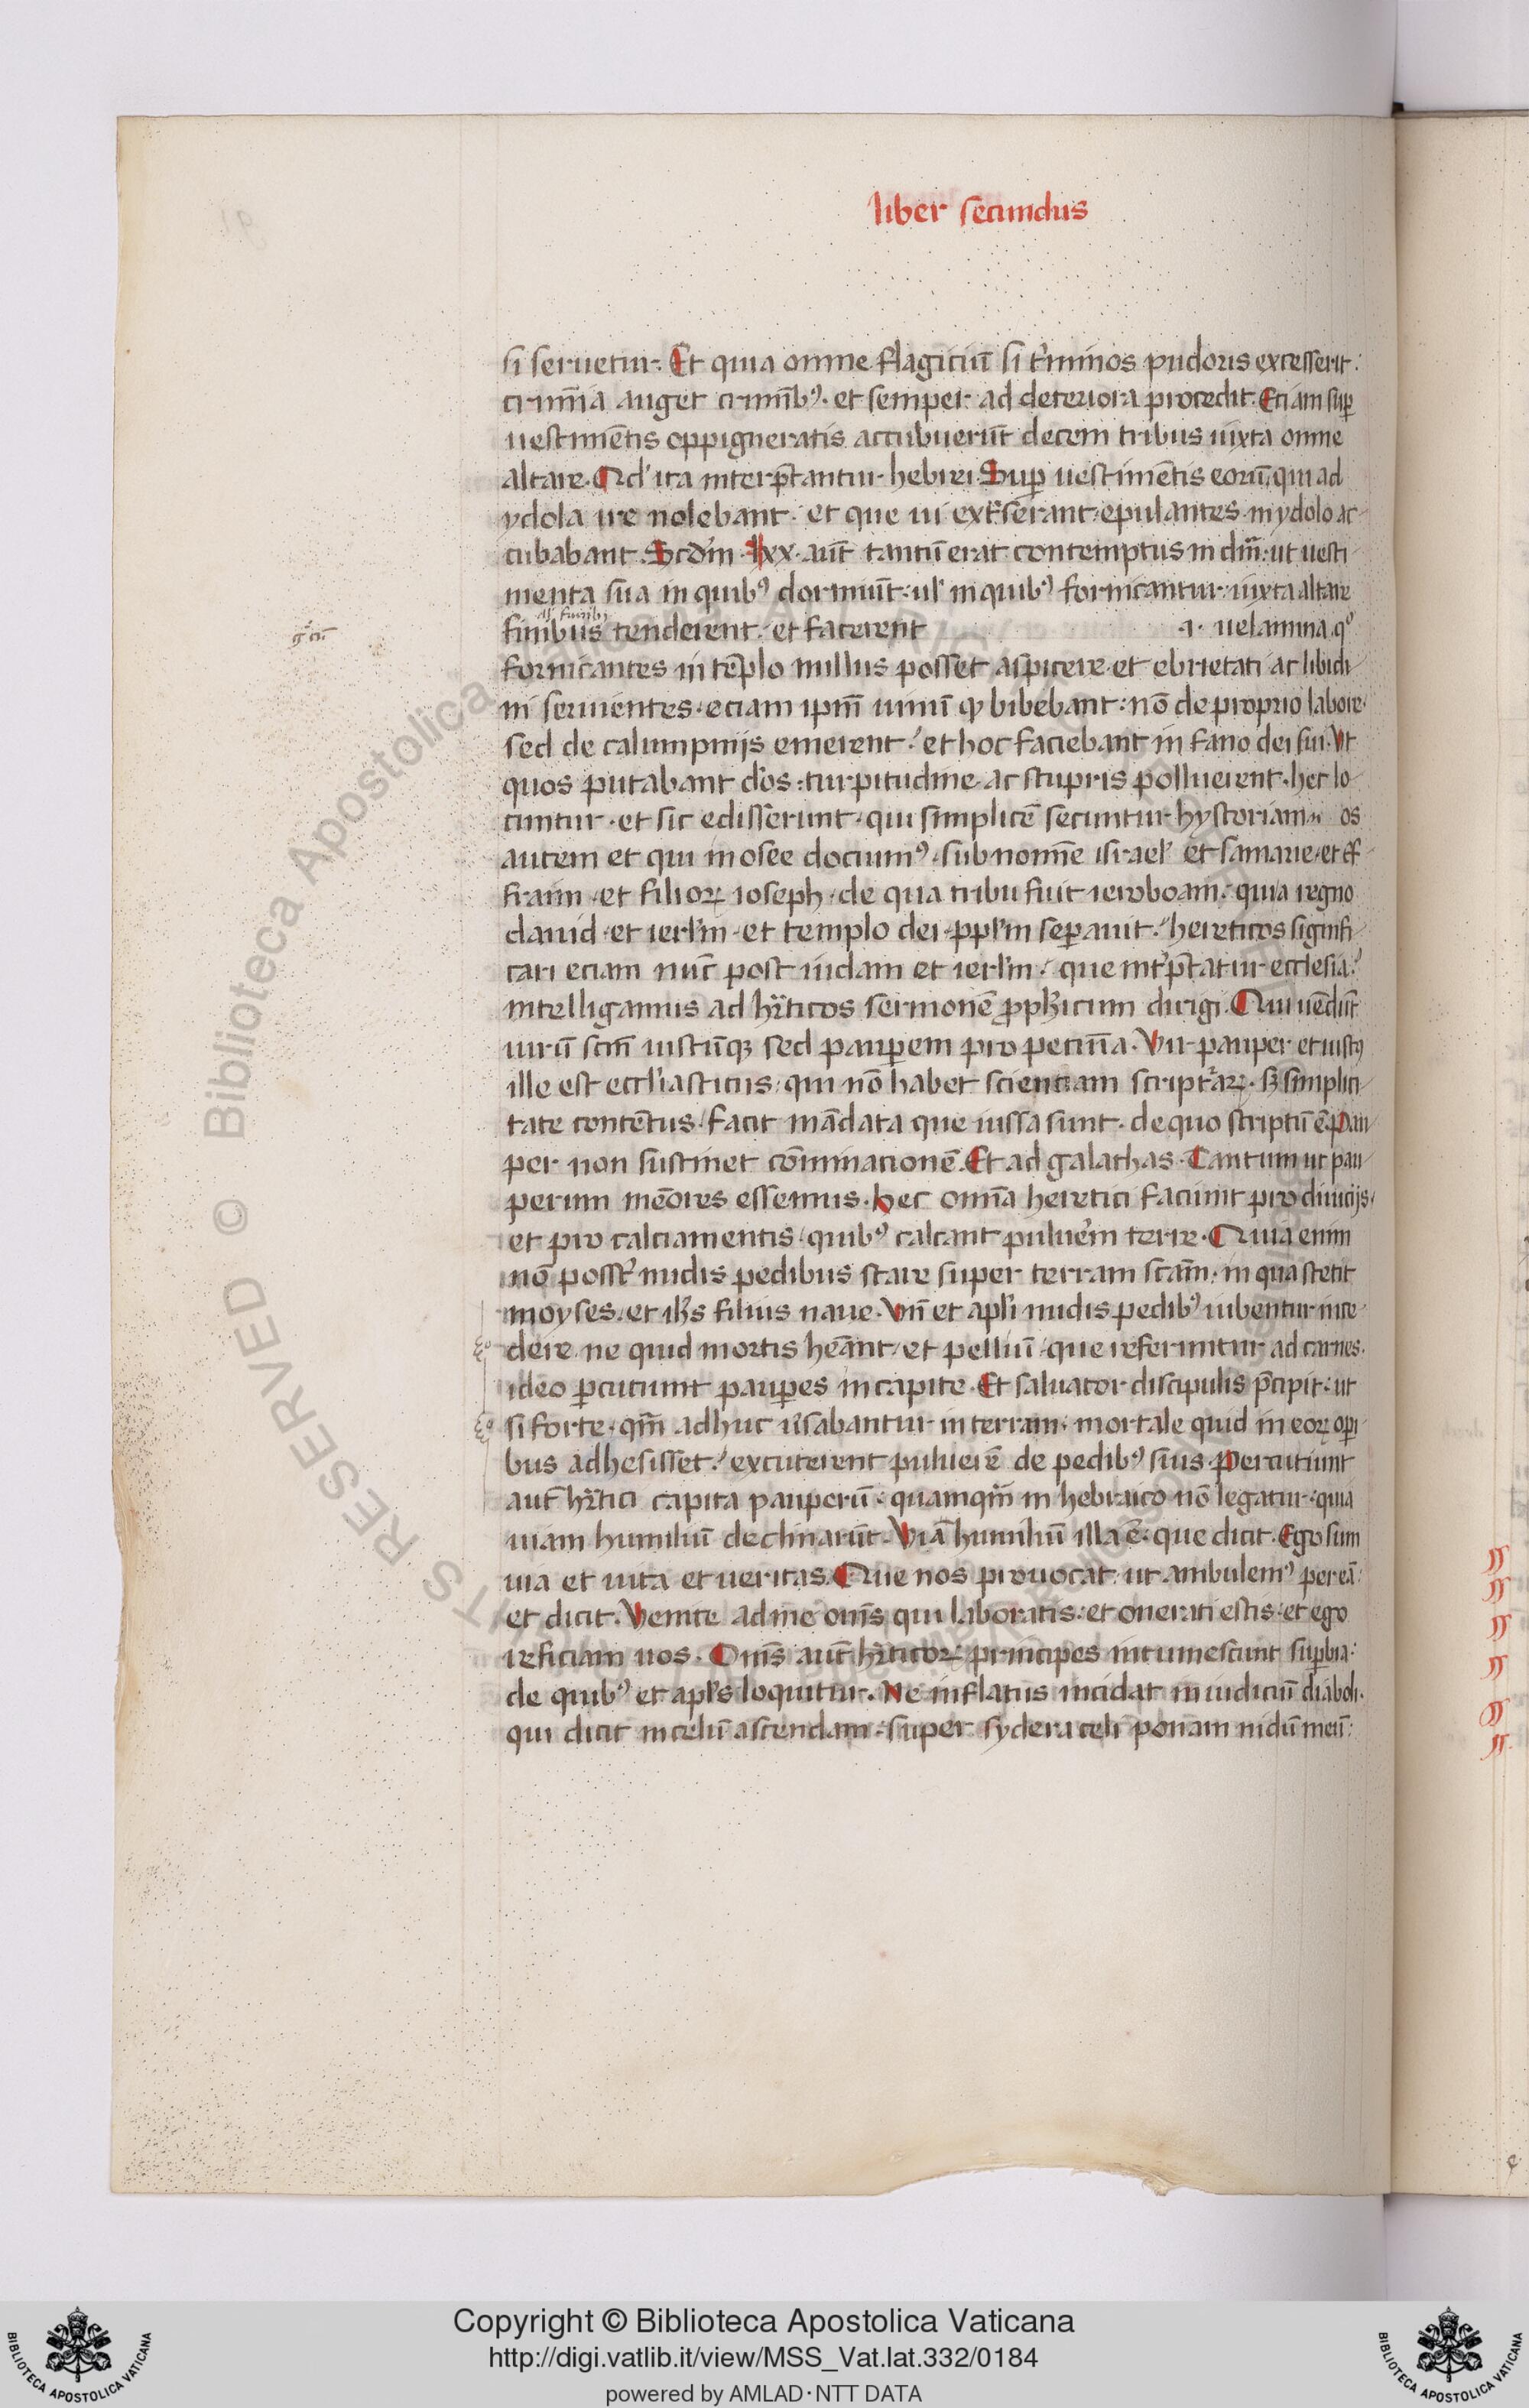 liber secundus
si seruetur. Et quia omne flagiciū si t'minos pudoris excesserit:
crimīa auget crimīb9. et semper ad deteriora procedit. Eciam sup
uestimētis oppigneratis accubuerūt decem tribus iuxta omne
altare. Qd' ita interp̄tantur hebrei. Sup uestimētis eorū, qui ad
ydola ire nolebant. et que ui ext'serant, epulantes in ydolo ac
cubabant. Scd'm lxx. aūt tantū erat contemptus in dm̄: ut uesti
menta sua in quib9 dormiūt: ul' in quib9 fornicantur: iuxta altare
al' funib9
finibus tenderent. et facerent .i. uelamina qo
gr̄cū
fornicantes in tēplo nullus posset aspicere. et ebrietati ac libidi
ni seruientes. eciam ipm̄ uinū qđ bibebant: nō de proprio labore.
sed de calumpnijs emerent. et hoc faciebant in fano dei sui. Vt
quos putabant d'os: turpitudine ac stupris polluerent. hec lo
cuntur. et sic edisserunt. qui simplicē secuntur hystoriam. os
autem et qui in osee docuim9. sub nomīe israel' et samarie. et ef
fraim. et filioꝝ ioseph. de qua tribu fuit ieroboam. quia regno
dauid. et ierl'm. et templo dei. ppl'm sep̱auit. hereticos signifi
cari eciam nūc post iudam et ierl'm. que int'p̄tatur ecclesia.
intelligamus ad h'ticos sermonē ꝓph'icum dirigi. Qui uēdūt
uirū scm̄ iustūqꝫ sed paup̱em pro pecunīa. Vir pauper et iust9
ille est eccl'iasticus. qui nō habet scienciam script'aꝝ. sꝫ simplici
tate contētus. facit mādata que iussa sunt. de quo scriptū ē. Pau
per non sustinet cōminacionē. Et ad galathas. Tantum ut pau
perum mēores essemus. Hec omīa heretici faciunt pro diuicijs.
et pro calciamentis. quib9 calcant puluer'm terre. Quia enim
nō posst' nudis pedibus stare super terram scām. in qua stetit
moyses. et ih's filius naue. Vn̄ et apl'i nudis pedib9 iubentur ince
dere. ne quid mortis heānt. et pelliū. que referuntur ad carnes.
ideo p̱cutiunt paup̱es in capite. Et saluator discipulis p̄cipit. ut
si forte. qm̄ adhuc u'sabantur in terram. mortale quid in eoꝝ opi
bus adhesisset. excuterent puluerē de pedib9 suis. Percutiunt
aut̄ h'tici capita pauperū. quamqm̄ in hebraico nō legatur. quia
uiam humiliū declinarūt. Viā humiliū illa ē. que dicit. Ego sum
uia et uita et ueritas. Que nos prouocat. ut ambulem9 per eā.
et dicit. Venite ad me om̄s qui laboratis. et onerati estis. et ego
reficiam uos. Om̄s aūt h'ticoꝝ principes intumescunt sup̱bia.
de quib9 et apl's loquitur. Ne inflatus incidat in iudiciū diaboli.
qui dicit in celū ascendam. super sydera celi ponam nidū meū.
Copyright © Biblioteca Apostolica Vaticana
http://digi.vatlib.it/view/MSS_Vat.lat.332/0184
powered by AMLAD·NTT DATA